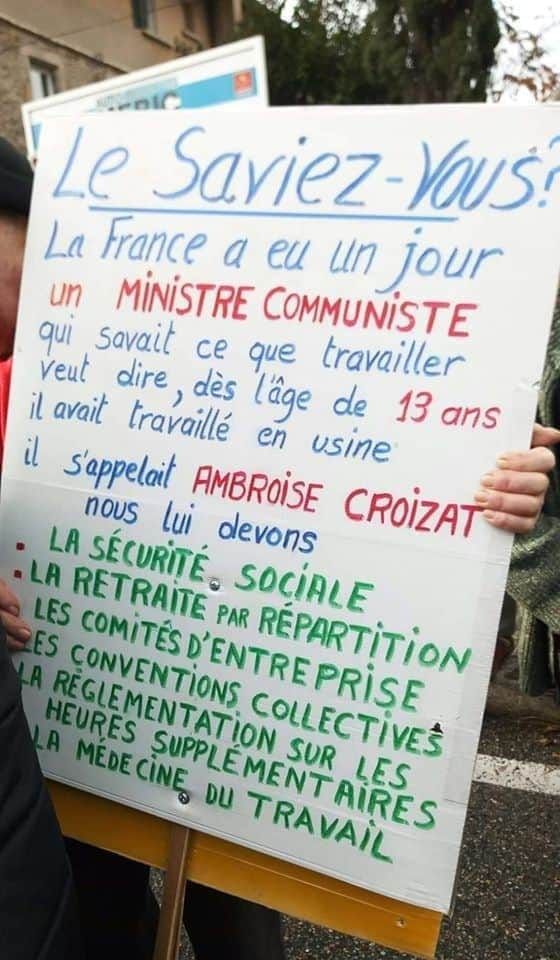 Le Saviez-Vous?
La France a eu un jour
un MINISTRE COMMUNISTE
qui savait ce que travailler
veut dire, dès l'âge de 13 ans
il avait travaillé en usine
il s'appelait AMBROISE CROIZAT
nous lui devons
- LA SÉCURITÉ SOCIALE
- LA RETRAITE PAR RÉPARTITION
LES COMITÉS D'ENTREPRISE
LES CONVENTIONS COLLECTIVES
LA RÉGLEMENTATION SUR LES
HEURES SUPPLÉMENTAIRES
LA MÉDECINE DU TRAVAIL